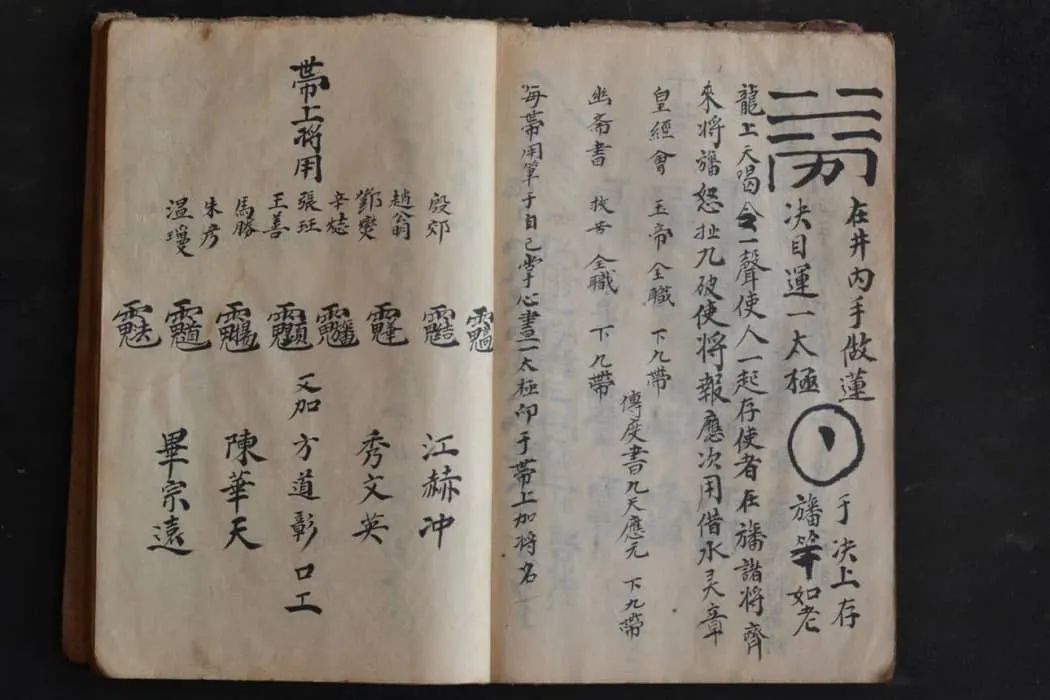 在井內手做蓮
決目運一太極
于決上存
旛竿如老
龍上天喝令一聲使人一起存使者在旛諸將齊
來將旛怒扯九破使將報應次用借水灵章
皇經會 玉帝全職 下九帶
傳度書九天應元 下九帶
幽斋書 救苦全職 下九帶
每帶用筆于自己掌心畫一太極印于帶上加將名
帶上將用
殷郊
趙翁
鄧燮
辛
張玨
王善
馬勝
朱彥
溫瓊
又加
江赫冲
秀文英
方道彰 口工
陳華天
畢宗遠